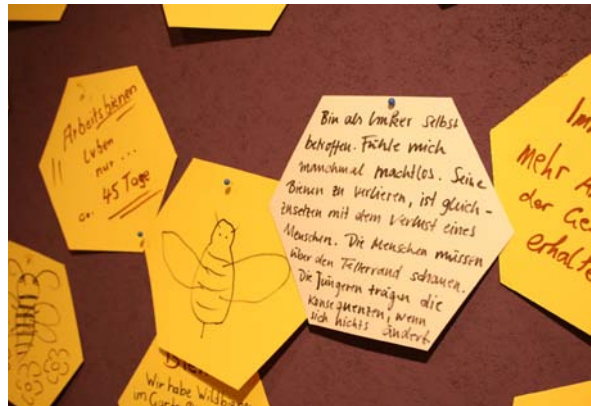 Arbeitsbienen
leben
nur ...
ca. 45 Tage
Bin als Imker selbst
betroffen. Fühle mich
manchmal machtlos. Seine
Bienen zu verlieren, ist gleich-
zusetzen mit dem Verlust eines
Menschen. Die Menschen müssen
über den Tellerrand schauen.
Die Jüngeren trägen die
Konsequenzen, wenn
sich nichts ändert.
mehr
der
Wir habe
im